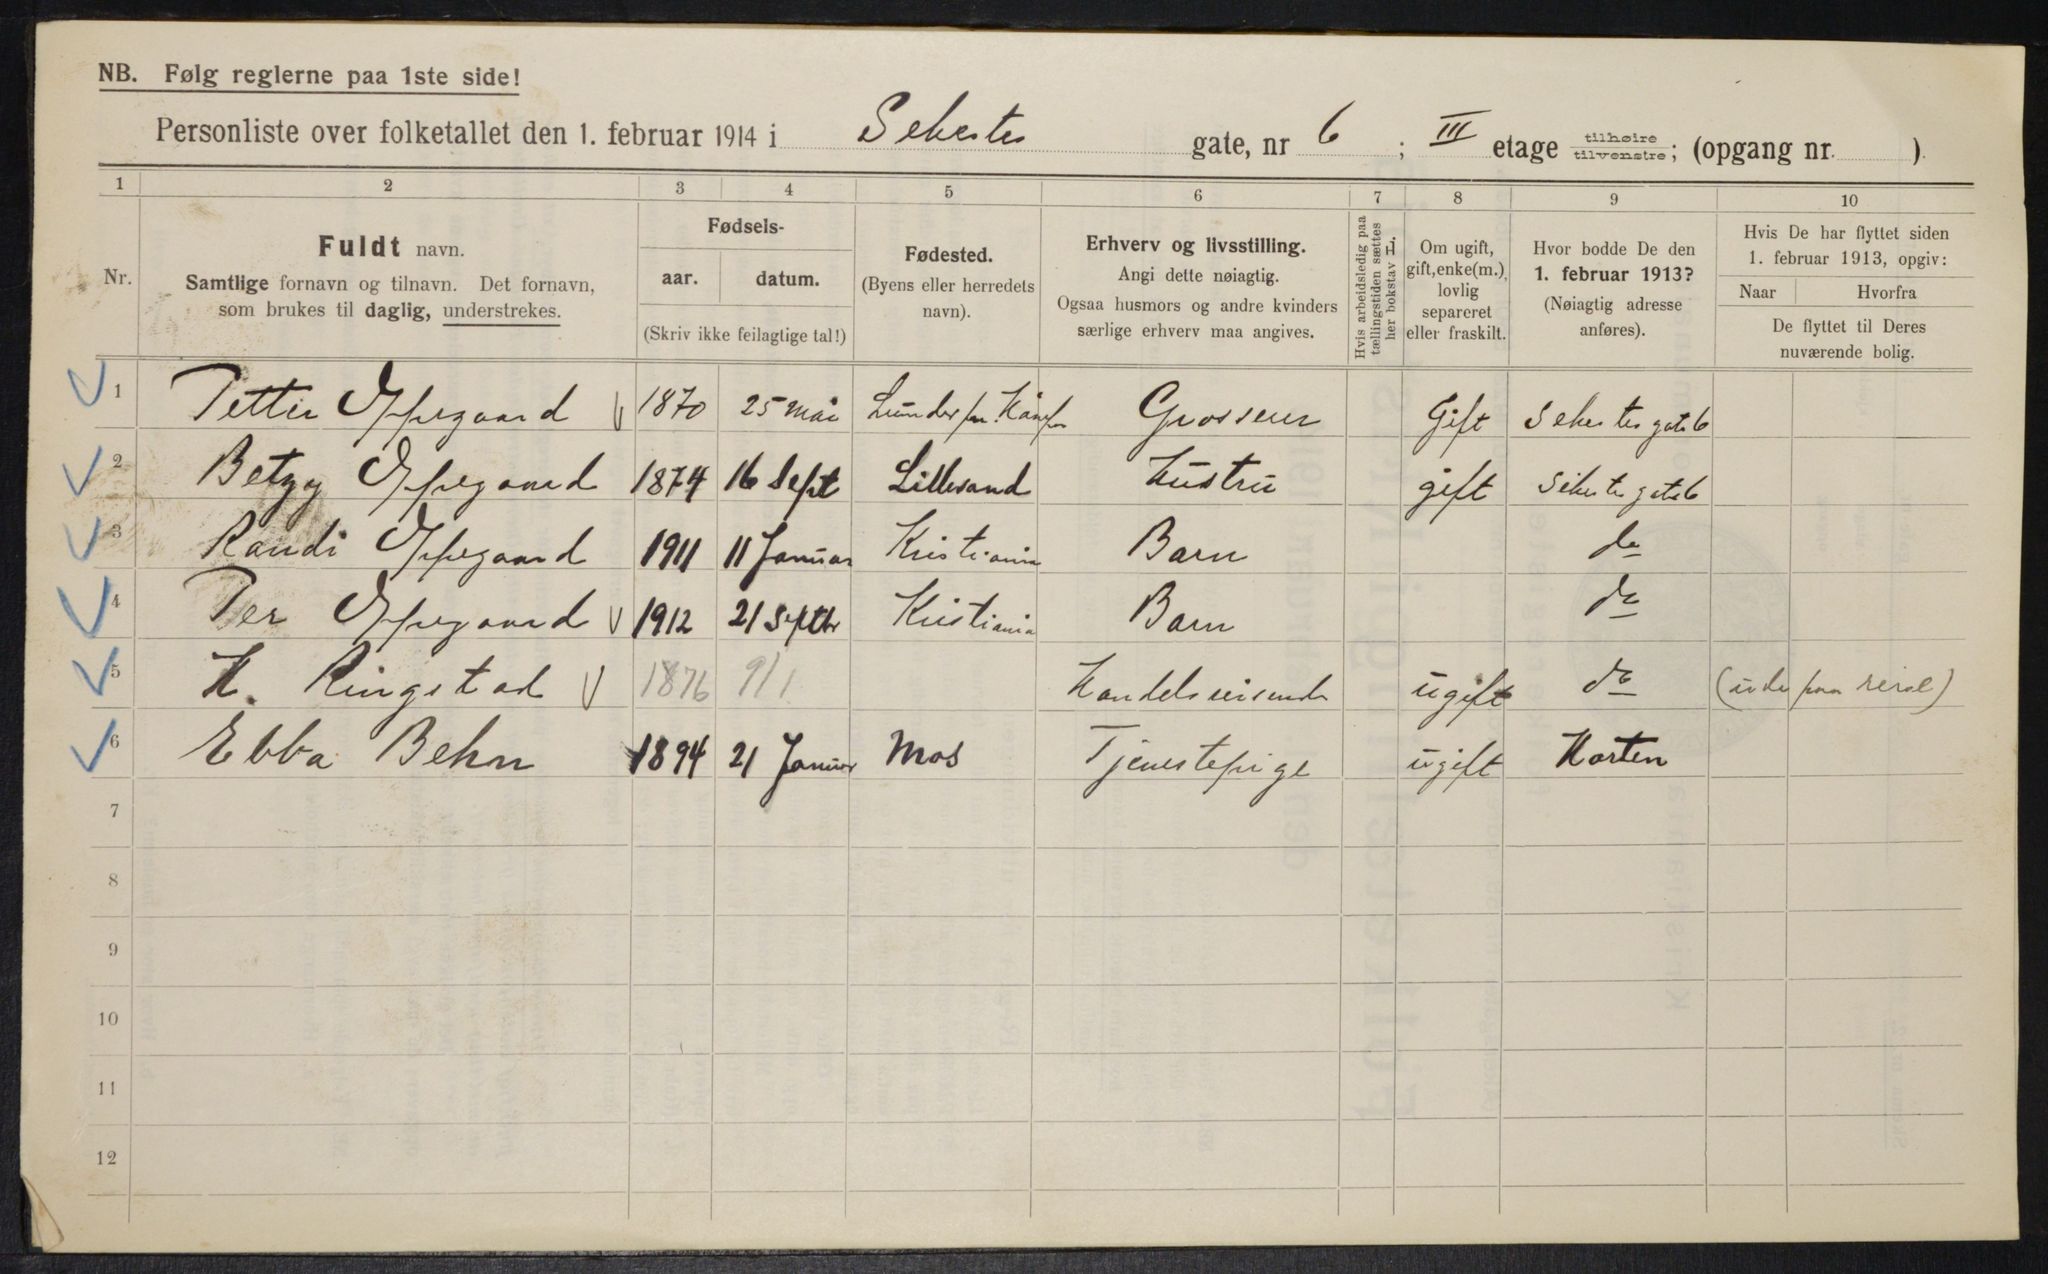 NB. Følg reglerne paa 1ste side!
Personliste over folketallet den 1. februar 1914 i Sehestes gate, nr 6 ; III etage tilhøire tilvenstre; (opgang nr. )
1 2 3 4 5 6 7 8 9 10
Nr.
Fuldt navn.
Samtlige fornavn og tilnavn. Det fornavn,
som brukes til daglig, understrekes.
Fødsels-
aar. datum.
(Skriv ikke feilagtige tal!)
Fødested.
(Byens eller herredets
navn).
Erhverv og livsstilling.
Angi dette nøiagtig.
Ogsaa husmors og andre kvinders
særlige erhverv maa angives.
Hvis arbeidsledig paa
tællingstiden sættes
her bokstav L.
Om ugift,
gift, enke(m.),
lovlig
separeret
eller fraskilt.
Hvor bodde De den
1. februar 1913?
(Nøiagtig adresse
anføres).
Hvis De har flyttet siden
1. februar 1913, opgiv:
Naar Hvorfra
De flyttet til Deres
nuværende bolig.
1 Petter Oppegaard 1870 25 mai Grosserer Gift Sehestes gate 6
2 Betzy Oppegaard 1874 16 Sept Lillesand Hustru gift Sehestes gate 6
3 Randi Oppegaard 1911 11 Januar Kristiania Barn do
4 Per Oppegaard 1912 21 Septbr Kristiania Barn do
5 H. Ringstad 1876 9/1 Handelsreisende ugift do (ude paa reise)
6 Ebba Behn 1894 21 Januar Mos Tjenestepige ugift Horten
7
8
9
10
11
12